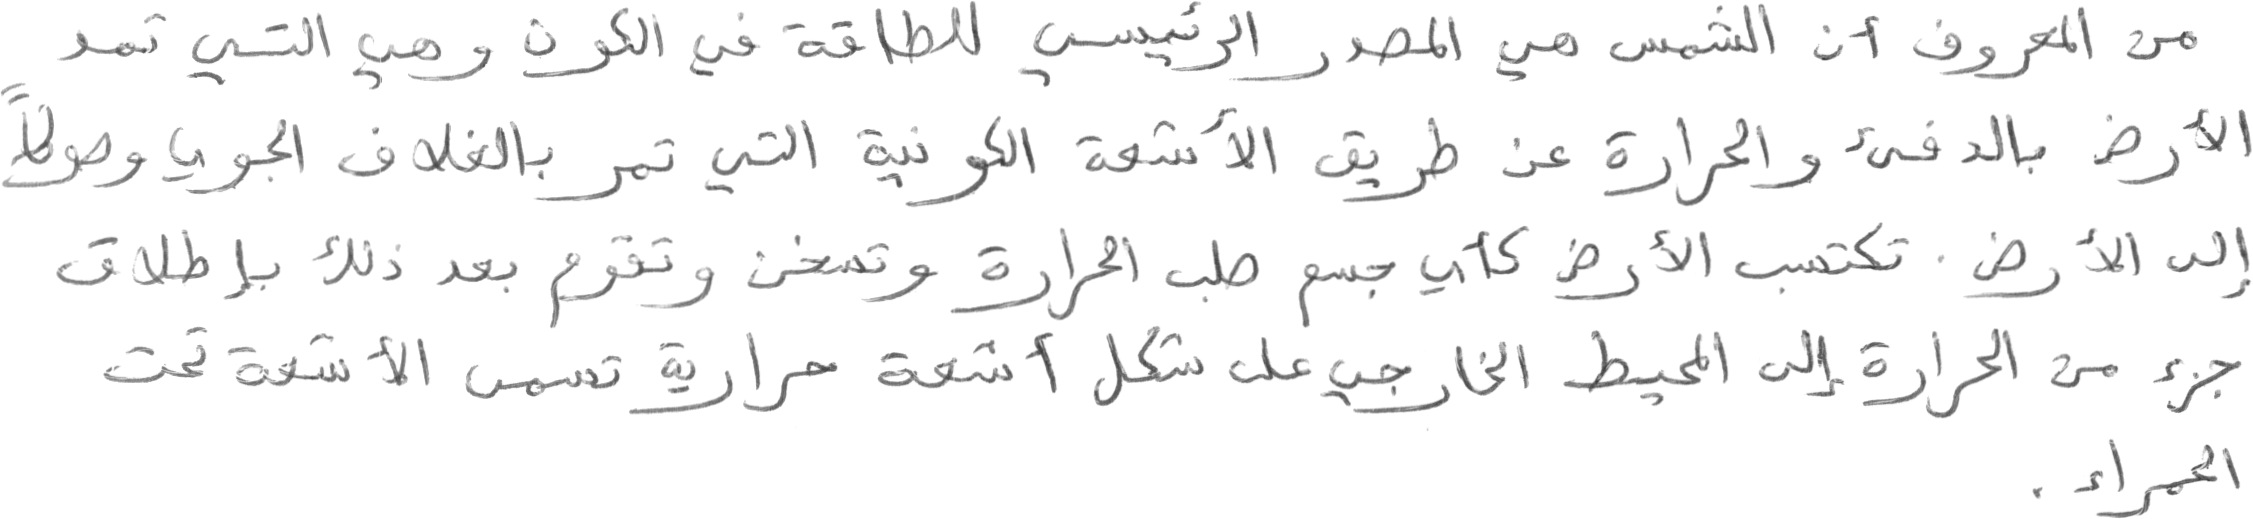 من المعروف أن الشمس هي المصدر الرئيسي للطاقة في الكون وهي التي تمد
الأرض بالدفئ والحرارة عن طريق الأشعة الكونية التي تمر بالغلاف الجوي وصولاً
إلى الأرض. تكتسب الأرض كأي جسم صلب الحرارة وتسخن وتقوم بعد ذلك بإطلاق
جزء من الحرارة إلى المحيط الخارجي على شكل أشعة حرارية تسمى الأشعة تحت
الحمراء.